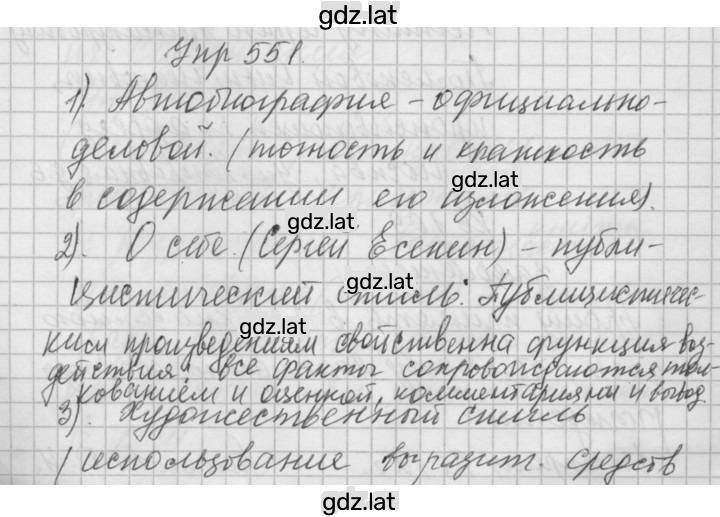 gdz.lat
Упр 551.
1). Автобиография – официально-
деловой. (точность и краткость
gdz.lat
в содержании его изложения).
gdz.lat
2). О себе. (Сергей Есенин) – публи-
цистический стиль. Публицистичес-
gdz.lat
ким произведениям свойственна функция воз-
действия, все факты сопровождаются тол-
gdz.lat
кованием и оценкой, комментариями и вывод
3). Художественный стиль
(использование выразит. средств
gdz.lat